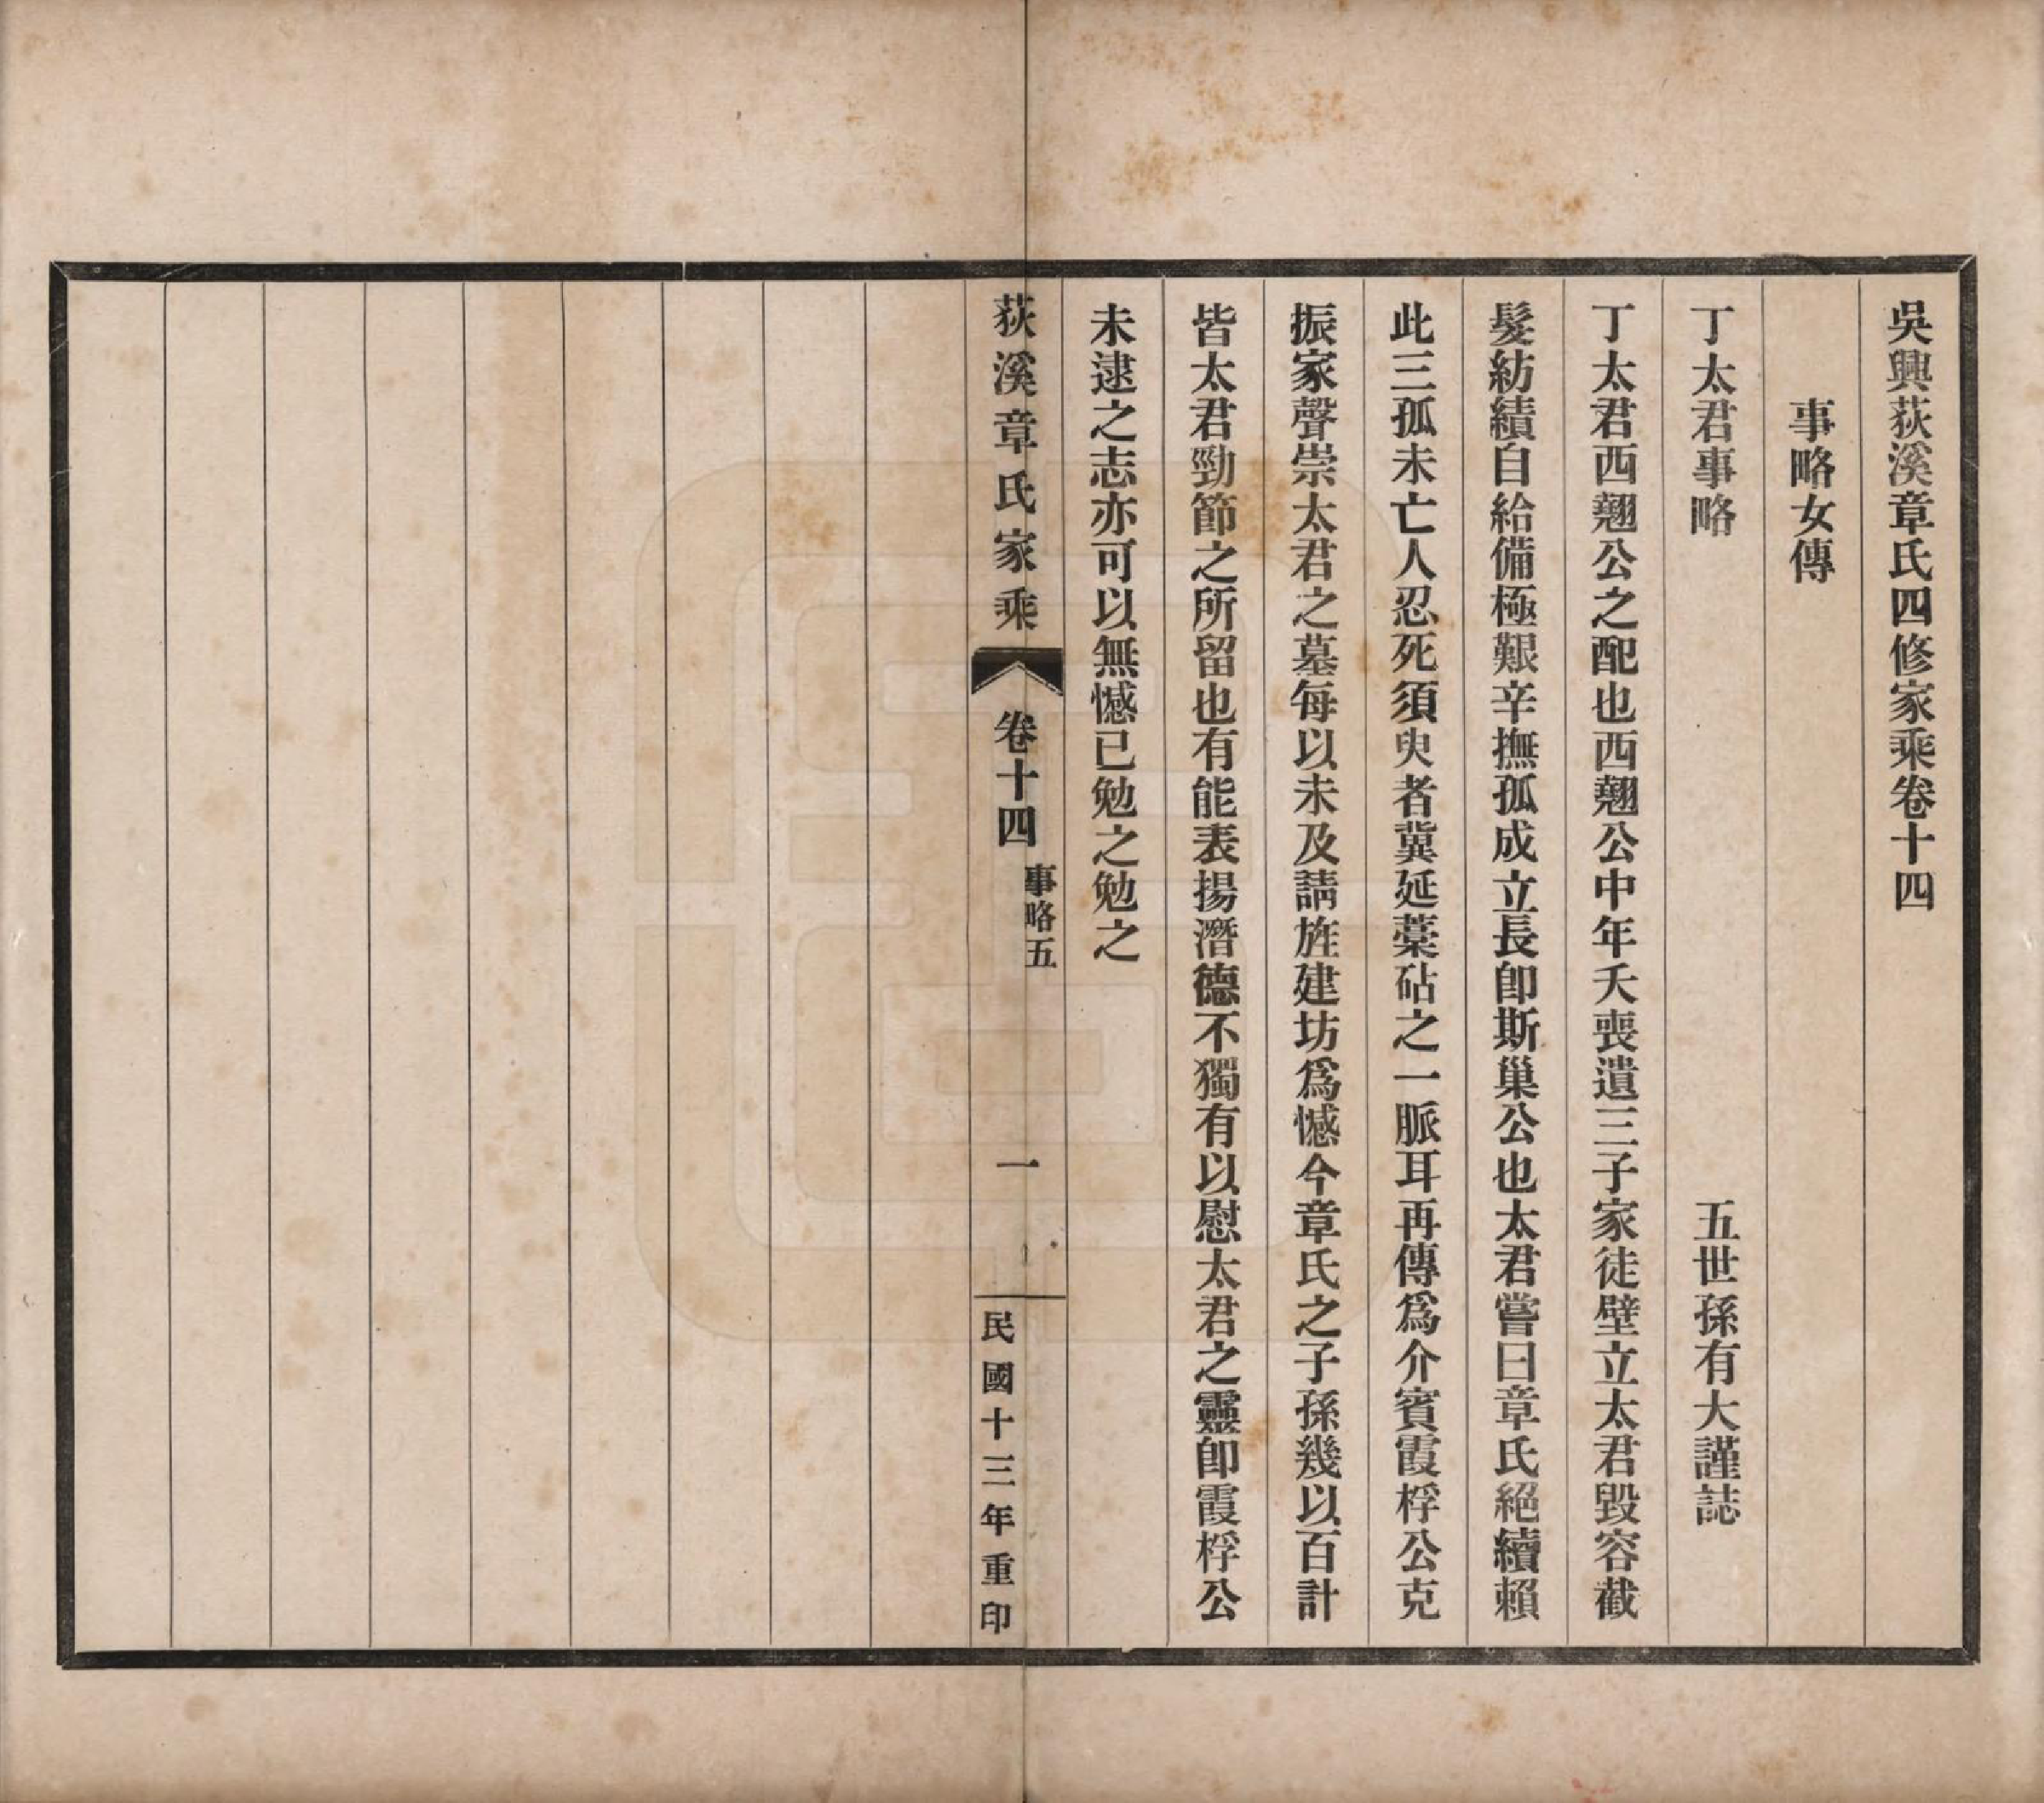 吳興荻溪章氏四修家乘卷十四
事略女傳
丁太君事略　五世孫有大謹誌
丁太君西翹公之配也西翹公中年夭喪遺三子家徒壁立太君毀容截
髮紡績自給備極艱辛撫孤成立長卽斯巢公也太君嘗曰章氏絕續賴
此三孤未亡人忍死須臾者冀延藁砧之一脈耳再傳爲介賓霞桴公克
振家聲崇太君之墓每以未及請旌建坊爲憾今章氏之子孫幾以百計
皆太君勁節之所留也有能表揚潛德不獨有以慰太君之靈卽霞桴公
未逮之志亦可以無憾已勉之勉之
荻溪章氏家乘　卷十四　事略五　一　民國十三年重印